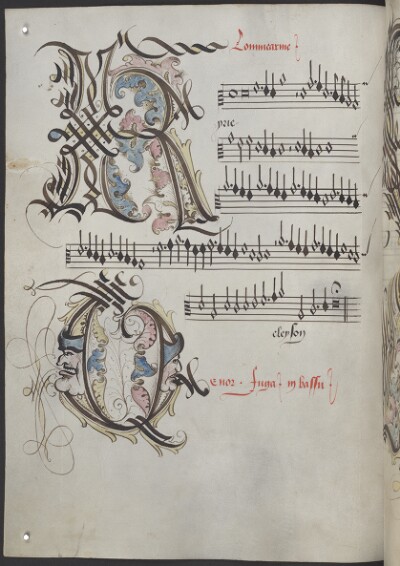 Lommearme
K
prie
cleyson
Tenor. Fuga in bassu